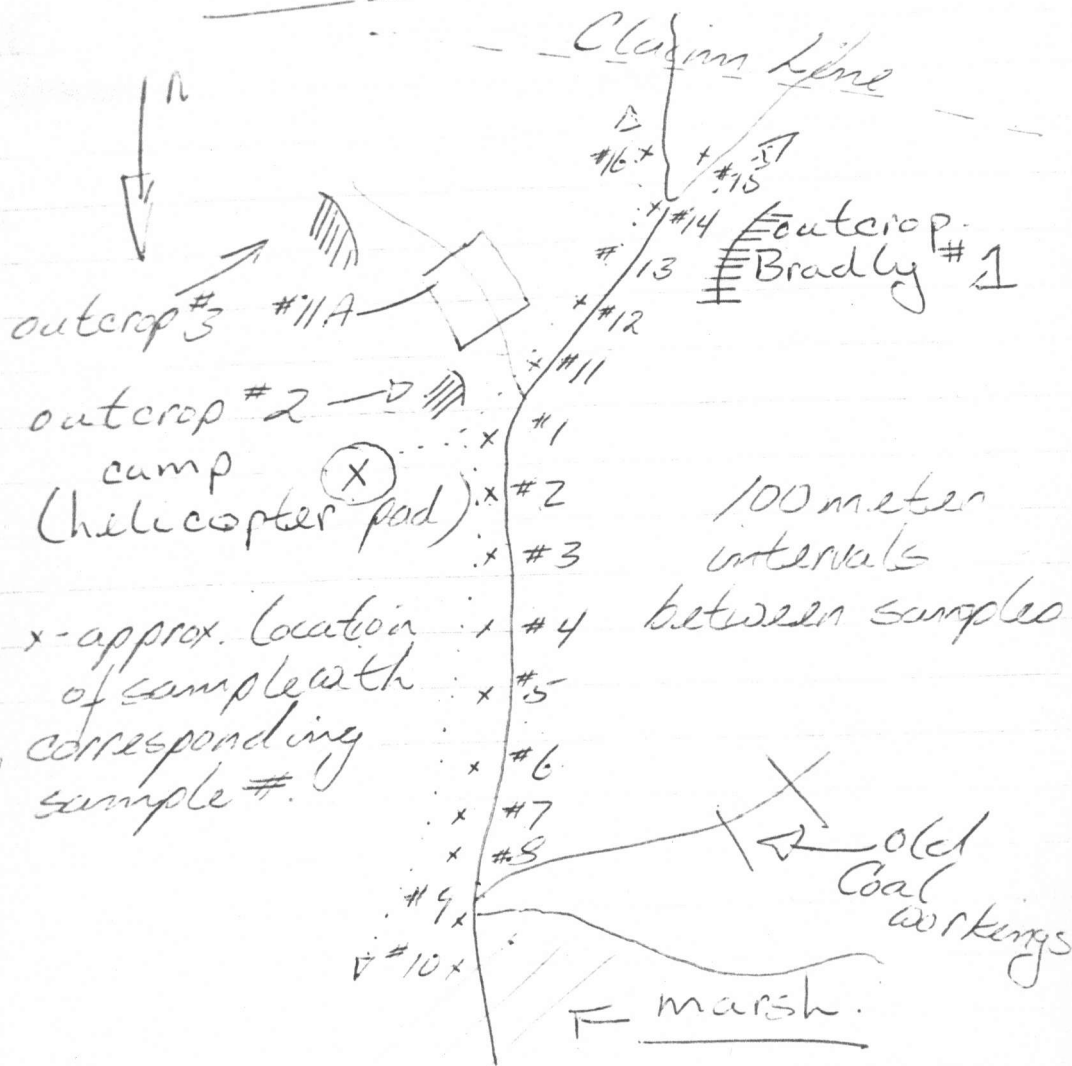 Claim Line
n
#16
#15
#14
outcrop.
Bradly #1
#13
outcrop #3
#11A
#12
#11
outcrop #2
#1
camp
(helicopter pad)
X
#2
100 meter
intervals
between samples
#3
x-approx. location
of sample with
corresponding
sample #.
#4
#5
#6
#7
#8
old
Coal
workings
#9
#10
marsh.